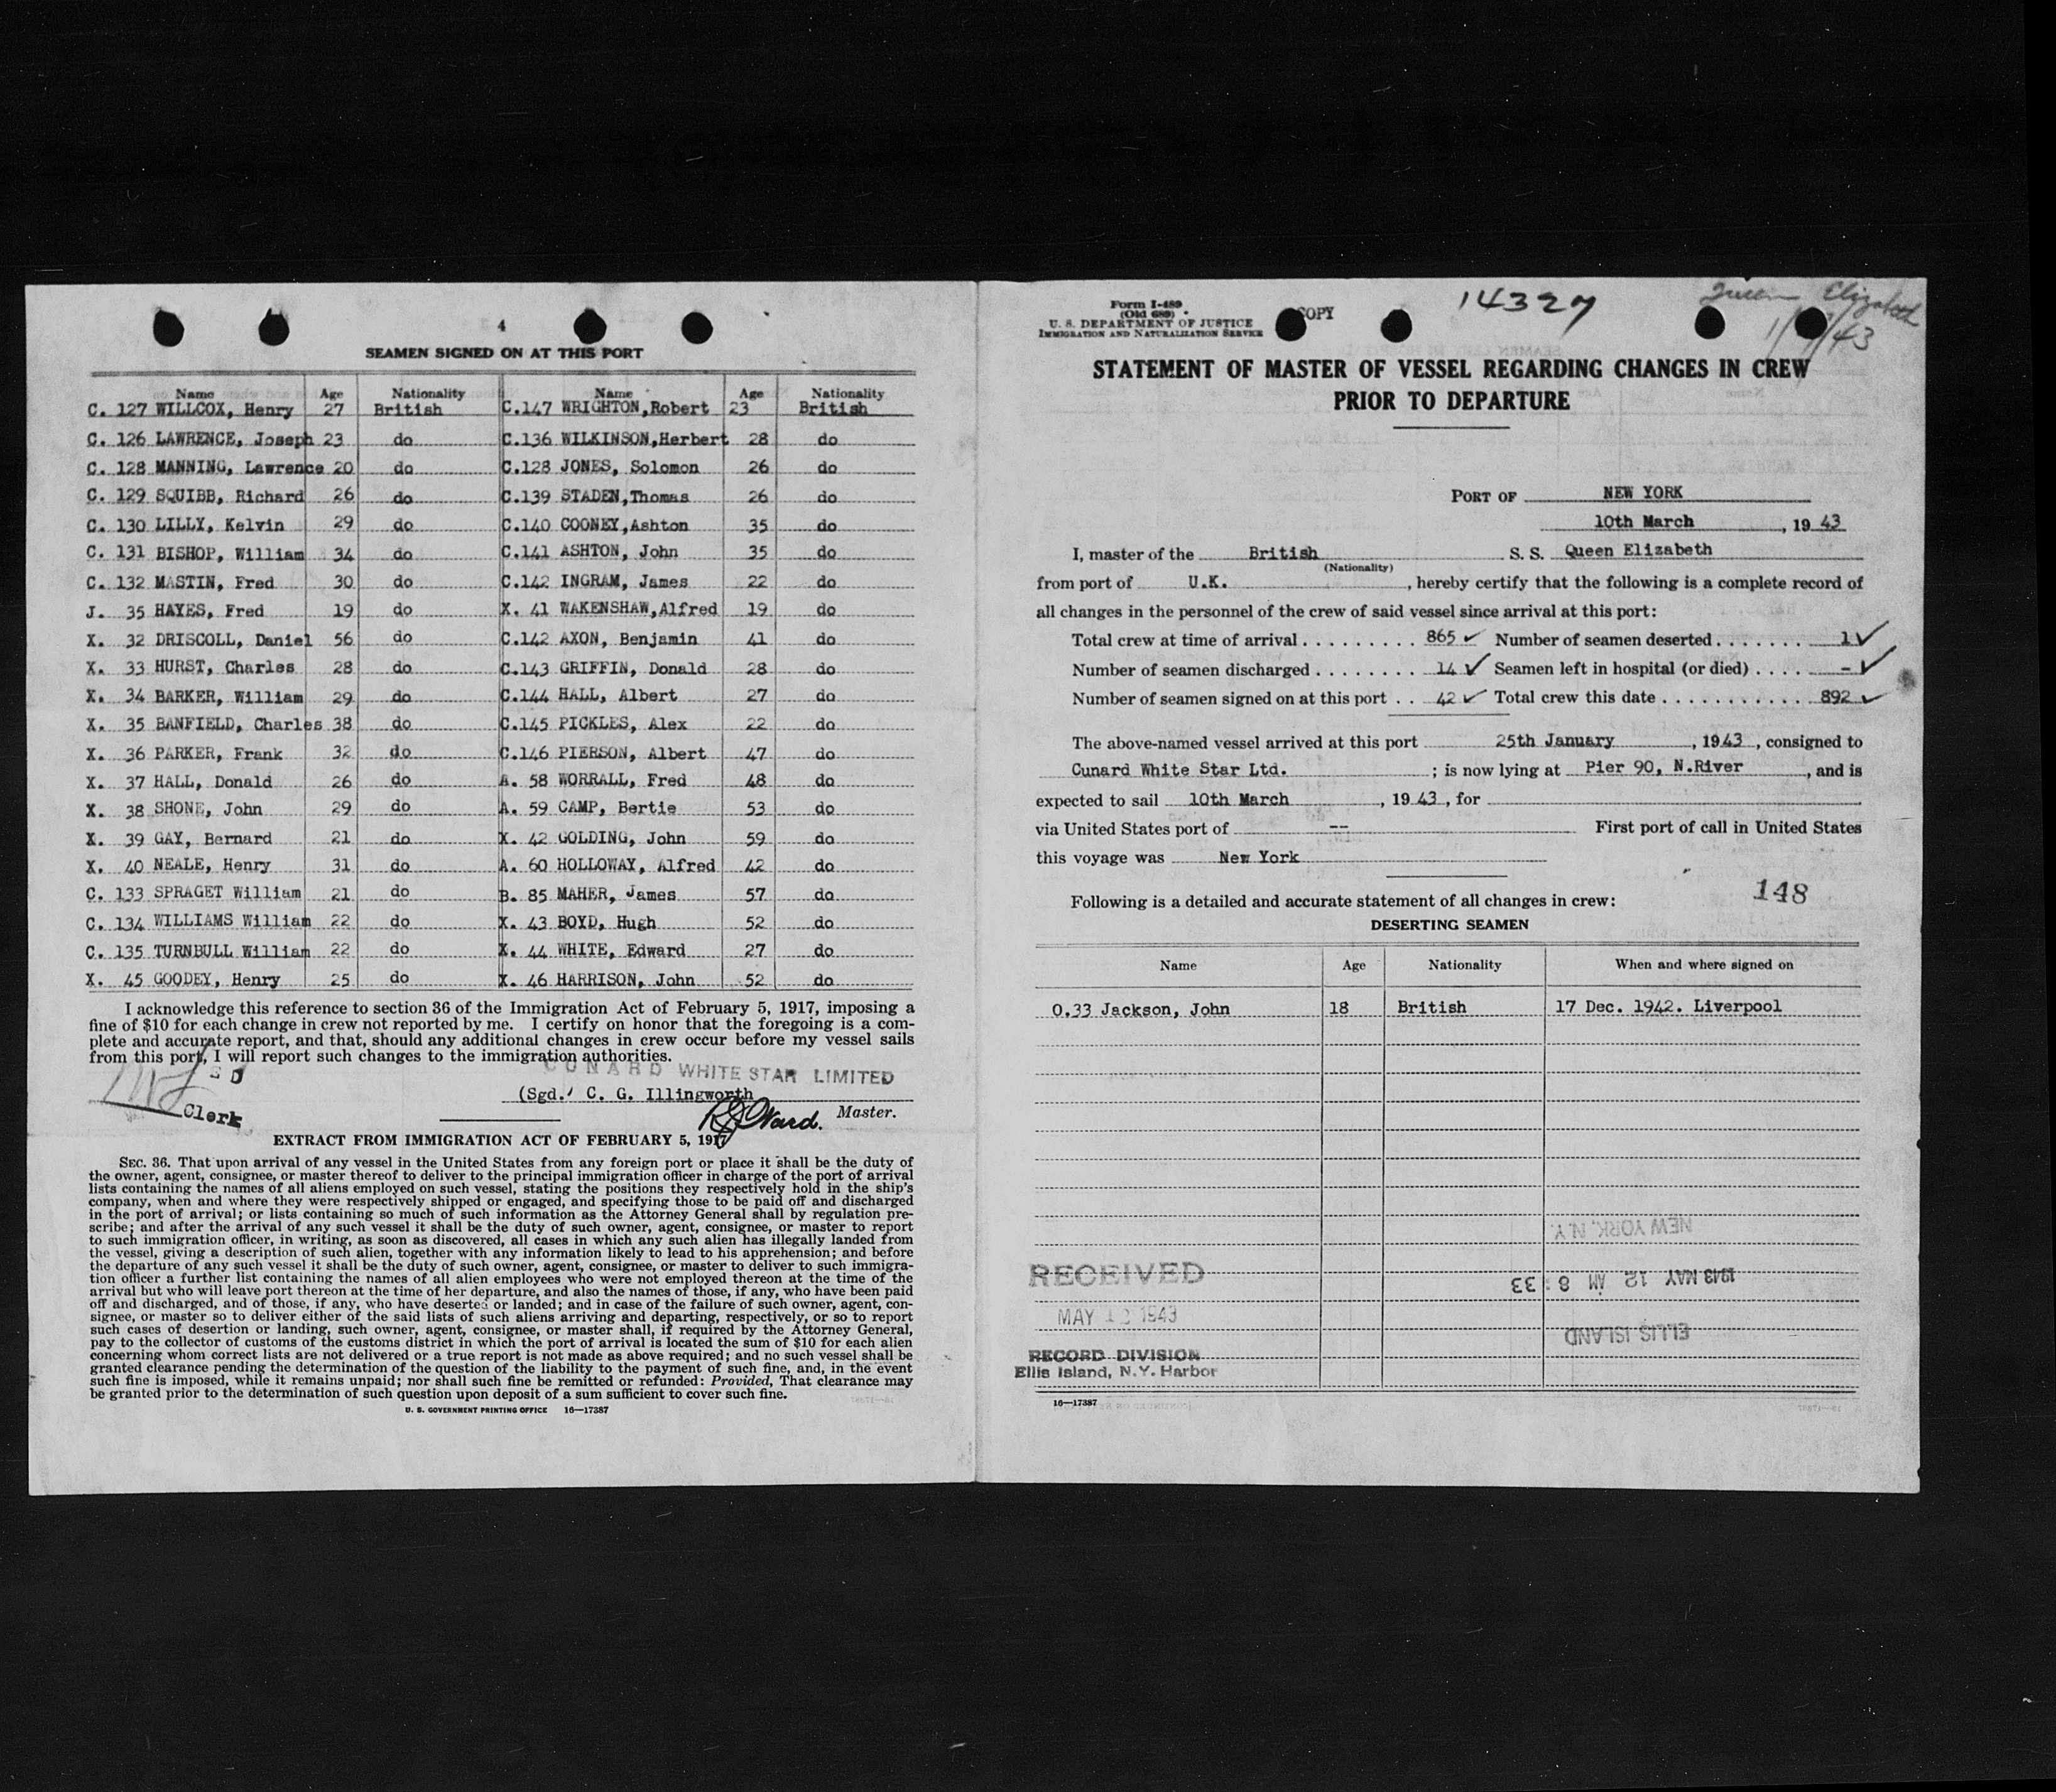 4
SEAMEN SIGNED ON AT THIS PORT
Name Age Nationality Name Age Nationality
C. 127 WILLCOX, Henry 27 British C.147 WRIGHTON,Robert 23 British
C. 126 LAWRENCE, Joseph 23 do C.136 WILKINSON,Herbert 28 do
C. 128 MANNING, Lawrence 20 do C.128 JONES, Solomon 26 do
C. 129 SQUIBB, Richard 26 do C.139 STADEN,Thomas 26 do
C. 130 LILLY, Kelvin 29 do C.140 COONEY,Ashton 35 do
C. 131 BISHOP, William 34 do C.141 ASHTON, John 35 do
C. 132 MASTIN, Fred 30 do C.142 INGRAM, James 22 do
J. 35 HAYES, Fred 19 do X. 41 WAKENSHAW,Alfred 19 do
X. 32 DRISCOLL, Daniel 56 do C.142 AXON, Benjamin 41 do
X. 33 HURST, Charles 28 do C.143 GRIFFIN, Donald 28 do
X. 34 BARKER, William 29 do C.144 HALL, Albert 27 do
X. 35 BANFIELD, Charles 38 do C.145 PICKLES, Alex 22 do
X. 36 PARKER, Frank 32 do C.146 PIERSON, Albert 47 do
X. 37 HALL, Donald 26 do A. 58 WORRALL, Fred 48 do
X. 38 SHONE, John 29 do A. 59 CAMP, Bertie 53 do
X. 39 GAY, Bernard 21 do X. 42 GOLDING, John 59 do
X. 40 NEALE, Henry 31 do A. 60 HOLLOWAY, Alfred 42 do
C. 133 SPRAGET William 21 do B. 85 MAHER, James 57 do
C. 134 WILLIAMS William 22 do X. 43 BOYD, Hugh 52 do
C. 135 TURNBULL William 22 do X. 44 WHITE, Edward 27 do
X. 45 GOODEY, Henry 25 do X. 46 HARRISON, John 52 do
I acknowledge this reference to section 36 of the Immigration Act of February 5, 1917, imposing a
fine of $10 for each change in crew not reported by me. I certify on honor that the foregoing is a com-
plete and accurate report, and that, should any additional changes in crew occur before my vessel sails
from this port, I will report such changes to the immigration authorities.
CUNARD WHITE STAR LIMITED
(Sgd.) C. G. Illingworth
Clerk
Ward. Master.
EXTRACT FROM IMMIGRATION ACT OF FEBRUARY 5, 1917
SEC. 36. That upon arrival of any vessel in the United States from any foreign port or place it shall be the duty of
the owner, agent, consignee, or master thereof to deliver to the principal immigration officer in charge of the port of arrival
lists containing the names of all aliens employed on such vessel, stating the positions they respectively hold in the ship's
company, when and where they were respectively shipped or engaged, and specifying those to be paid off and discharged
in the port of arrival; or lists containing so much of such information as the Attorney General shall by regulation pre-
scribe; and after the arrival of any such vessel it shall be the duty of such owner, agent, consignee, or master to report
to such immigration officer, in writing, as soon as discovered, all cases in which any such alien has illegally landed from
the vessel, giving a description of such alien, together with any information likely to lead to his apprehension; and before
the departure of any such vessel it shall be the duty of such owner, agent, consignee, or master to deliver to such immigra-
tion officer a further list containing the names of all alien employees who were not employed thereon at the time of the
arrival but who will leave port thereon at the time of her departure, and also the names of those, if any, who have been paid
off and discharged, and of those, if any, who have deserted or landed; and in case of the failure of such owner, agent, con-
signee, or master so to deliver either of the said lists of such aliens arriving and departing, respectively, or so to report
such cases of desertion or landing, such owner, agent, consignee, or master shall, if required by the Attorney General,
pay to the collector of customs of the customs district in which the port of arrival is located the sum of $10 for each alien
concerning whom correct lists are not delivered or a true report is not made as above required; and no such vessel shall be
granted clearance pending the determination of the question of the liability to the payment of such fine, and, in the event
such fine is imposed, while it remains unpaid; nor shall such fine be remitted or refunded: Provided, That clearance may
be granted prior to the determination of such question upon deposit of a sum sufficient to cover such fine.
U. S. GOVERNMENT PRINTING OFFICE 16—17387
Form I-489
(Old 689)
U. S. DEPARTMENT OF JUSTICE
IMMIGRATION AND NATURALIZATION SERVICE
COPY
14327
Queen Elizabeth
STATEMENT OF MASTER OF VESSEL REGARDING CHANGES IN CREW
PRIOR TO DEPARTURE
PORT OF NEW YORK
10th March, 19 43
I, master of the British S. S. Queen Elizabeth
(Nationality)
from port of U.K., hereby certify that the following is a complete record of
all changes in the personnel of the crew of said vessel since arrival at this port:
Total crew at time of arrival . . . . . . . . . 865 ✓ Number of seamen deserted . . . . . . . 1 ✓
Number of seamen discharged . . . . . . . . 14 ✓ Seamen left in hospital (or died) . . . . - ✓
Number of seamen signed on at this port . . 42 ✓ Total crew this date . . . . . . . . . . . . 892 ✓
The above-named vessel arrived at this port 25th January, 1943, consigned to
Cunard White Star Ltd. ; is now lying at Pier 90, N.River, and is
expected to sail 10th March, 19 43, for
via United States port of -- First port of call in United States
this voyage was New York
148
Following is a detailed and accurate statement of all changes in crew:
DESERTING SEAMEN
Name Age Nationality When and where signed on
0.33 Jackson, John 18 British 17 Dec. 1942. Liverpool
NEW YORK, N.Y.
RECEIVED
1943 MAY 12 AM 8:33
MAY 12 1943
ELLIS ISLAND
RECORD DIVISION
Ellis Island, N.Y. Harbor
16—17387